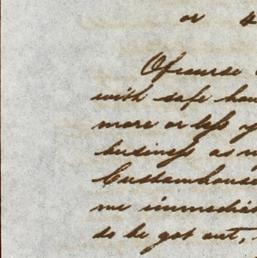 or
Of course
with safe
more or less
business as
Customhouse
me immedia
do he got out,